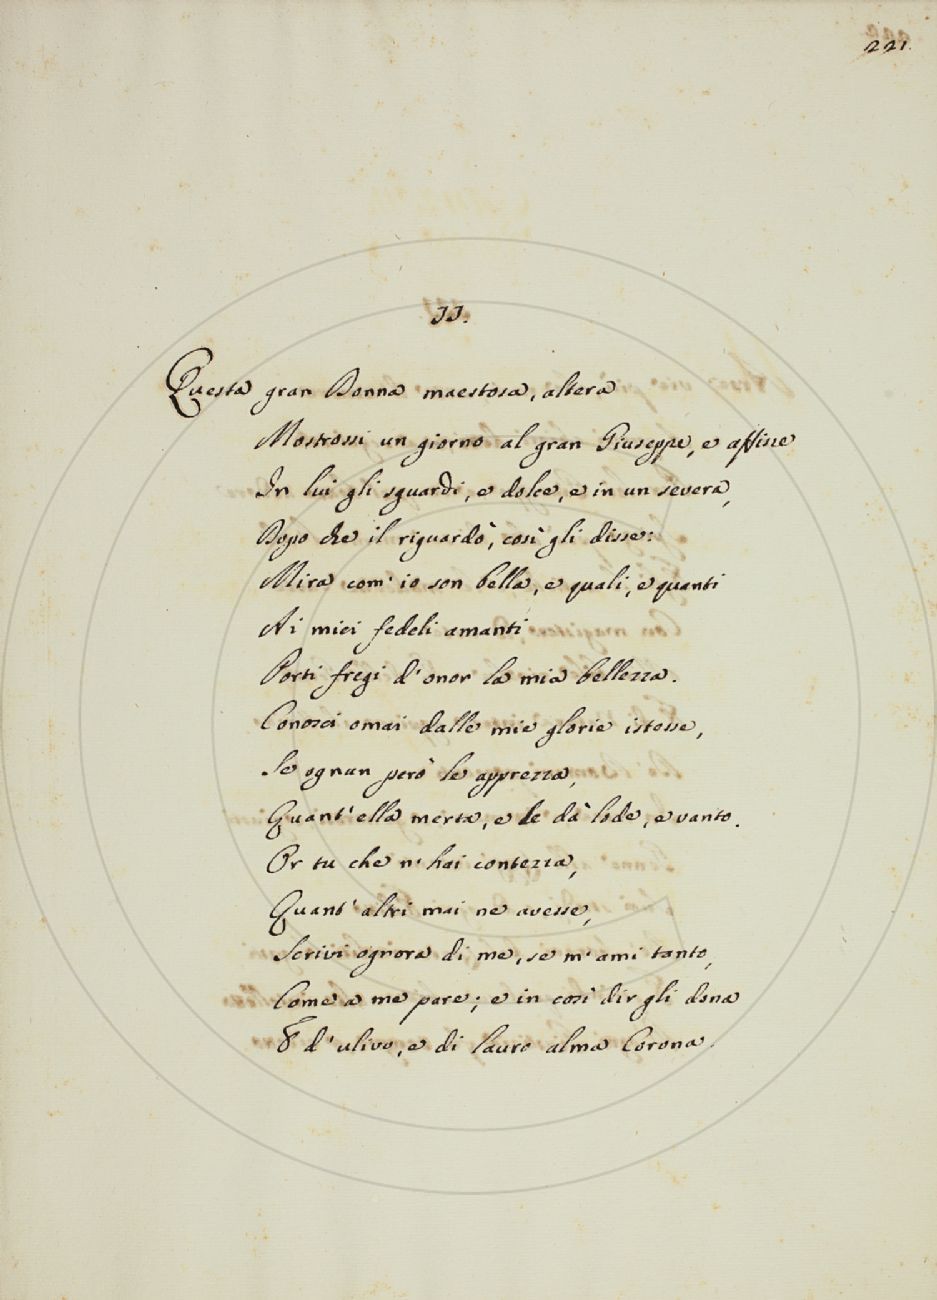 221.
II.
Questa gran Donna maestosa, altera
Mostrossi un giorno al gran Giuseppe, e affisse
In lui gli sguardi, e dolce, e in un severa,
Dopo che il riguardò, così gli disse:
Mira com' io son bella, e quali, e quanti
Ai miei fedeli amanti
Porti fregi d' onor la mia bellezza.
Conosci omai dalle mie glorie istesse,
Se ognun però le apprezza,
Quant' ella merta, e le dà lode, e vanto.
Or tu che n' hai contezza,
Quant' altri mai ne avesse,
Scrivi ognora di me, se m' ami tanto,
Come a me pare; e in così dir gli dona
E d' ulivo, e di lauro alma Corona.